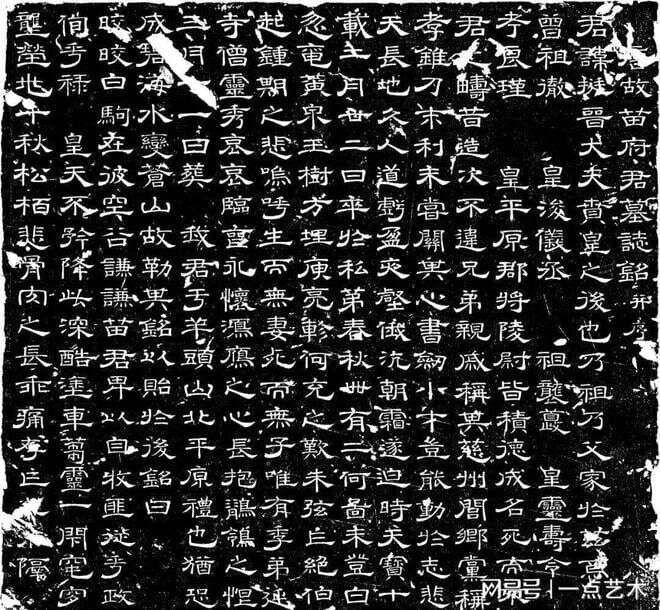 故苗府君墓誌銘并序
君諱挺晉大夫賁皇之後也乃祖乃父家於茲
曾祖徹 皇浚儀丞 祖龔 皇靈壽令
考 瑾 皇平原郡將陵尉皆積德成名死而
君之疇昔造次不違兄弟親戚稱其慈州閭鄉黨稱
孝錐刀末利未嘗關其心書劍小才豈能動於志悲
天長地久人道虧盈夾壑俄沈朝霜遂迫時天寶十
載二月廿二日卒於私第春秋卅有二何啚未登白
忽竁黃泉玉樹芳埋庾亮軫何充之歎朱弦亡絕伯
起鍾期之悲嗚呼生而無妻死而無子唯有季弟延
寺僧靈秀哀哀臨壙永懷鴻鴈之心長抱鶺鴒之
三月十一日葬 我君于羊頭山北平原禮也猶恐
成碧海水變蒼山故勒其銘以貽於後銘曰
皎皎白駒在彼空谷謙謙苗君卑以自牧匪從子政
徇于祿 皇天不弔降此深酷塗車蒭靈一閇窀穸
塋兆千秋松栢悲骨肉之長乖痛存亡之永隔
网易号 | 一点艺术